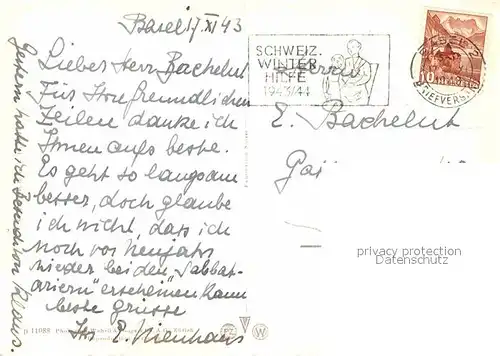 Basel 17 XI 43
Lieber Herr Bachelut
Für Ihre freundlichen
Zeilen danke ich
Ihnen aufs beste.
Es geht so langsam
besser, doch glaube
ich nicht, dass ich
noch vor Neujahr
wieder bei den "Sabbat-
ariern" erscheinen kann
beste grüsse
Ihr E. Nienhaus
Gestern hatte ich Besuch von Klaus.
SCHWEIZ.
WINTER
HILFE
1943/44
Herrn
E. Bachelut
BASEL 2
BRIEFVERS
10
privacy protection
Datenschutz
11988